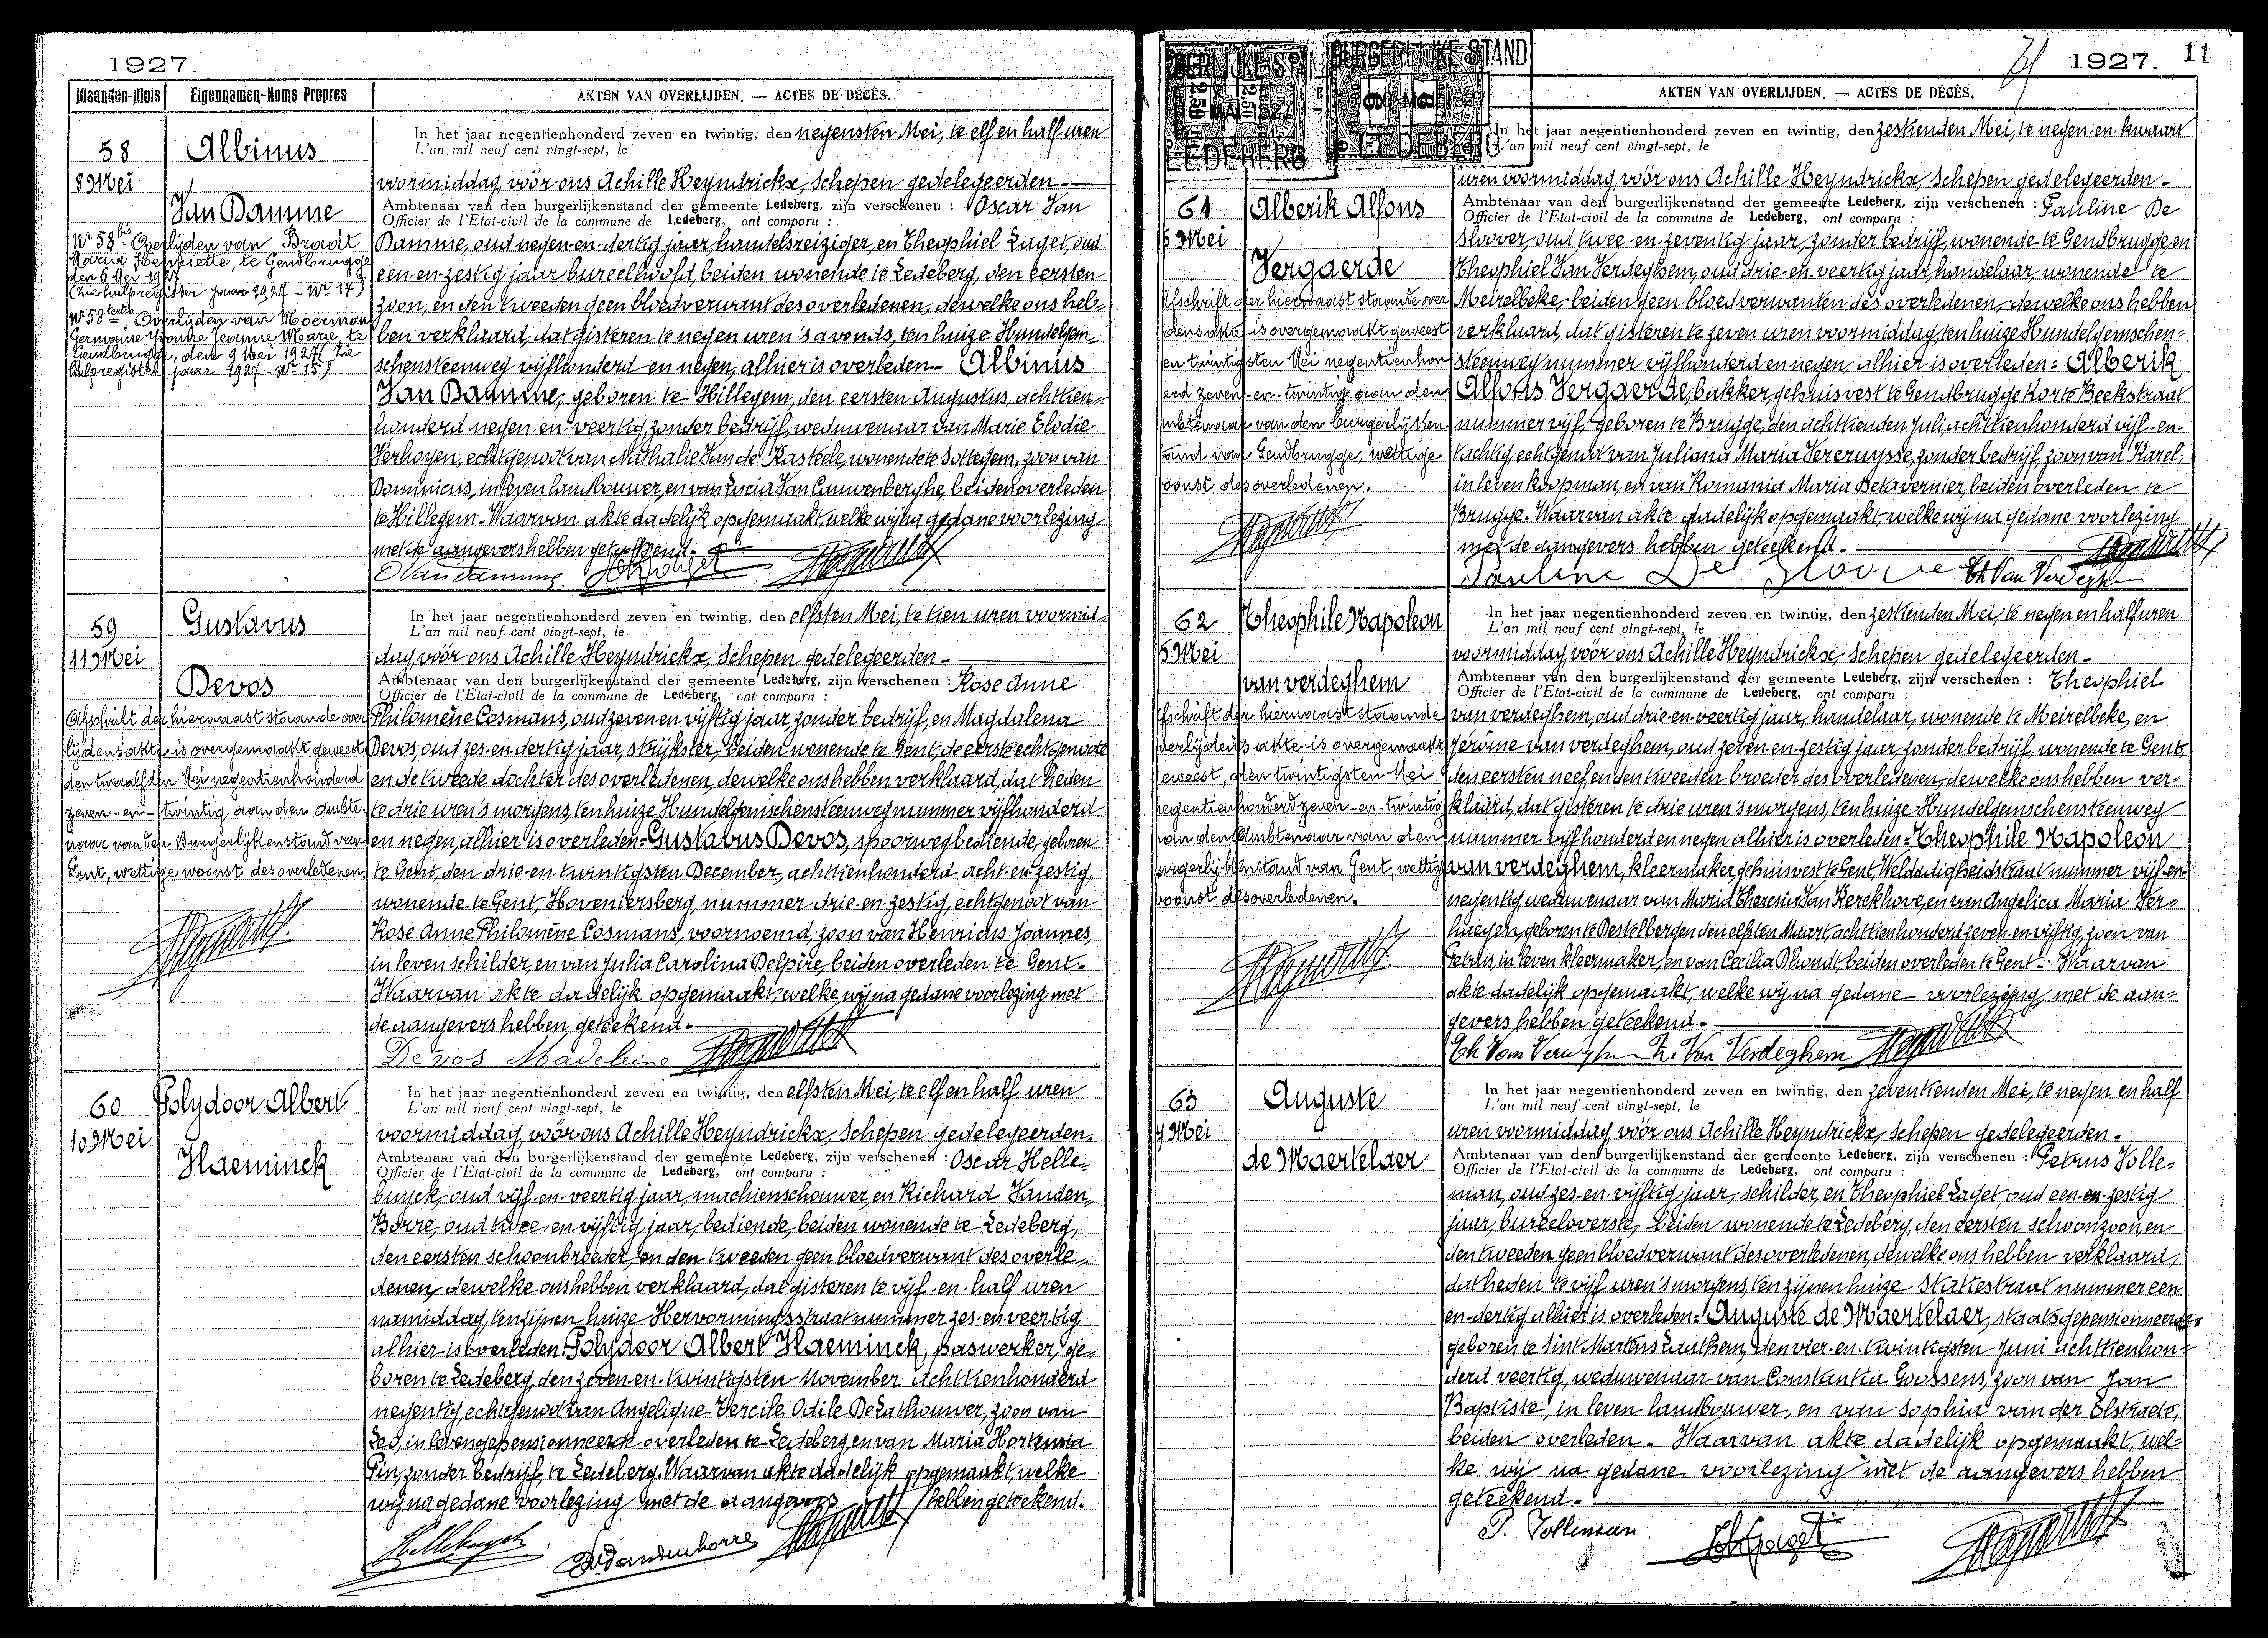 1927.
Maanden-Mois Eigennamen-Noms Propres AKTEN VAN OVERLIJDEN. — ACTES DE DÉCÈS.
58
8 Mei
Albinus
Van Damme
Nr 58bis Overlijden van Bradt
Maria Henriette, te Gendbrugge
den 6 Mei 1927
(zie hulpregister jaar 1927 - Nr 14)
Nr 58 Overlijden van Moerman
Germaine Yvonne Jeanne Marie, te
Gendbrugge, den 9 Mei 1927 (zie
hulpregister jaar 1927 - Nr 15)
In het jaar negentienhonderd zeven en twintig, den negensten Mei, te elf en half uren
L'an mil neuf cent vingt-sept, le
voormiddag, vöör ons Achille Heyndrickx, Schepen gedelegeerden -
Ambtenaar van den burgerlijkenstand der gemeente Ledeberg, zijn verschenen : Oscar Van
Officier de l'Etat-civil de la commune de Ledeberg, ont comparu :
Damme, oud negen-en-dertig jaar, handelsreiziger, en Theophiel Laget, oud
een-en-zestig jaar, bureelhoofd, beiden wonende te Ledeberg, den eersten
zoon, en den tweeden geen bloedverwant des overledenen, dewelke ons heb-
ben verklaard, dat gisteren te negen uren 's avonds, ten huize Hundelgem-
schensteenweg vijfhonderd en negen, alhier is overleden - Albinus
Van Damme, geboren te Hillegem, den eersten Augustus, achttien-
honderd negen-en-veertig, zonder bedrijf, weduwenaar van Marie Elodie
Verhoyen, echtgenoot van Nathalie Van de Kasteele, wonende te Sottegem, zoon van
Dominicus, in leven landbouwer, en van Lucia Van Cauwenberghe, beiden overleden
te Hillegem. Waarvan akte dadelijk opgemaakt, welke wij na gedane voorlezing
met de aangevers hebben geteekend. -
O Van Damme
59
11 Mei
Gustavus
Devos
Afschrift der hiernaast staande over
lijdensakte is overgemaakt geweest
den twaalfden Mei negentienhonderd
zeven-en-twintig, aan den Ambte-
naar van den Burgerlijkenstand van
Gent, wettige woonst des overledenen
In het jaar negentienhonderd zeven en twintig, den elfsten Mei, te tien uren voormid-
L'an mil neuf cent vingt-sept, le
dag, vöör ons Achille Heyndrickx, Schepen gedelegeerden -
Ambtenaar van den burgerlijkenstand der gemeente Ledeberg, zijn verschenen : Rose Anne
Officier de l'Etat-civil de la commune de Ledeberg, ont comparu :
Philomène Cosmans, oud zeven en vijftig jaar, zonder bedrijf, en Magdalena
Devos, oud zes-en-dertig jaar, strijkster, beiden wonende te Gent, de eerste echtgenoote
en de tweede dochter des overledenen, dewelke ons hebben verklaard, dat heden
te drie uren 's morgens, ten huize Hundelgemschensteenweg nummer vijfhonderd
en negen, alhier is overleden - Gustavus Devos, spoorwegbediende, geboren
te Gent, den drie-en-twintigsten December, achttienhonderd acht-en-zestig,
wonende te Gent, Hoveniersberg, nummer drie-en-zestig, echtgenoot van
Rose Anne Philomène Cosmans, voornoemd, zoon van Henricus Joannes,
in leven schilder, en van Julia Carolina Delpire, beiden overleden te Gent.
Waarvan akte dadelijk opgemaakt, welke wij na gedane voorlezing met
de aangevers hebben geteekend. -
Devos Madeleine
60
10 Mei
Polydoor Albert
Haeminck
In het jaar negentienhonderd zeven en twintig, den elfsten Mei, te elf en half uren
L'an mil neuf cent vingt-sept, le
voormiddag, vöör ons Achille Heyndrickx, Schepen gedelegeerden.
Ambtenaar van den burgerlijkenstand der gemeente Ledeberg, zijn verschenen : Oscar Helle-
Officier de l'Etat-civil de la commune de Ledeberg, ont comparu :
buyck, oud vijf-en-veertig jaar, machienschouwer, en Richard Vanden
Borre, oud twee-en-vijftig jaar, bediende, beiden wonende te Ledeberg,
den eersten schoonbroeder, en den tweeden geen bloedverwant des overle-
denen, dewelke ons hebben verklaard, dat gisteren te vijf-en-half uren
namiddag, ten zijnen huize Hervormingsstraat nummer zes-en-veertig
alhier is overleden: Polydoor Albert Haeminck, paswerker, ge-
boren te Ledeberg, den zeven-en-twintigsten November achttienhonderd
negentig, echtgenoot van Angelique Vercile Odile De Lathouwer, zoon van
Leo, in leven gepensionneerde overleden te Ledeberg, en van Maria Hortensia
Pin, zonder bedrijf, te Ledeberg. Waarvan akte dadelijk opgemaakt, welke
wij na gedane voorlezing met de aangevers hebben geteekend.
Hellebuyck
R. Vandenborre
1927. 11
BURGERLIJKE STAND
LEDEBERG
AKTEN VAN OVERLIJDEN. — ACTES DE DÉCÈS.
61
Mei
Alberik Alfons
Vergaerde
Afschrift der hiernaast staande over
lijdensakte is overgemaakt geweest
en twintigsten Mei negentienhon
derd zeven-en-twintig aan den
Ambtenaar van den burgerlijken
stand van Gendbrugge, wettige
woonst des overledenen.
In het jaar negentienhonderd zeven en twintig, den zestienden Mei, te negen-en-kwaart
L'an mil neuf cent vingt-sept, le
uren voormiddag, vöör ons Achille Heyndrickx, Schepen gedelegeerden -
Ambtenaar van den burgerlijkenstand der gemeente Ledeberg, zijn verschenen : Pauline De
Officier de l'Etat-civil de la commune de Ledeberg, ont comparu :
Sloover, oud twee-en-zeventig jaar, zonder bedrijf, wonende te Gendbrugge, en
Theophiel Van Verdeghem, oud drie-en-veertig jaar, handelaar, wonende te
Meirelbeke, beiden geen bloedverwanten des overledenen, dewelke ons hebben
verklaard, dat gisteren te zeven uren voormiddag, ten huize Hundelgemschen-
steenweg nummer vijfhonderd en negen, alhier is overleden: Alberik
Alfons Vergaerde, bakker, gehuisvest te Gendbrugge Korte Beekstraat
nummer vijf, geboren te Brugge, den achttienden Juli, achttienhonderd vijf-en-
tachtig, echtgenoot van Juliana Maria Vereruysse, zonder bedrijf, zoon van Karel,
in leven koopman, en van Romania Maria Detavernier, beiden overleden te
Brugge. Waarvan akte dadelijk opgemaakt, welke wij na gedane voorlezing
met de aangevers hebben geteekend. -
Pauline De Sloover Th Van Verdeghem
62
Mei
Theophile Napoleon
van verdeghem
Afschrift der hiernaast staande
overlijdens akte is overgemaakt
geweest, den twintigsten Mei
negentienhonderd zeven-en-twintig
aan den Ambtenaar van den
burgerlijkenstand van Gent, wettige
woonst des overledenen.
In het jaar negentienhonderd zeven en twintig, den zestienden Mei, te negen en half uren
L'an mil neuf cent vingt-sept, le
voormiddag, vöör ons Achille Heyndrickx, Schepen gedelegeerden -
Ambtenaar van den burgerlijkenstand der gemeente Ledeberg, zijn verschenen : Theophiel
Officier de l'Etat-civil de la commune de Ledeberg, ont comparu :
van verdeghem, oud drie-en-veertig jaar, handelaar, wonende te Meirelbeke, en
Jérôme van verdeghem, oud zeven-en-zestig jaar, zonder bedrijf, wonende te Gent,
den eersten neef en den tweeden broeder des overledenen, dewelke ons hebben ver-
klaard, dat gisteren te drie uren 's morgens, ten huize Hundelgemschensteenweg
nummer vijfhonderd en negen alhier is overleden - Theophile Napoleon
van verdeghem, kleermaker, gehuisvest te Gent, Weldadigheidstraat nummer vijf-en-
negentig, weduwenaar van Maria Theresia Van Kerckhove, en van Angelica Maria Ver-
haegen, geboren te Destelbergen den elfsten Maart, achttienhonderd zeven-en-vijftig, zoon van
Petrus, in leven kleermaker, en van Cecilia Dhondt, beiden overleden te Gent. Waarvan
akte dadelijk opgemaakt, welke wij na gedane voorlezing, met de aan-
gevers hebben geteekend. -
Th Van Verdeghem Z. Van Verdeghem
63
Mei
Auguste
de Maertelaer
In het jaar negentienhonderd zeven en twintig, den zeventienden Mei, te negen en half
L'an mil neuf cent vingt-sept, le
uren voormiddag, vöör ons Achille Heyndrickx, Schepen gedelegeerden.
Ambtenaar van den burgerlijkenstand der gemeente Ledeberg, zijn verschenen : Petrus Tolle-
Officier de l'Etat-civil de la commune de Ledeberg, ont comparu :
man, oud zes-en-vijftig jaar, schilder, en Theophiel Laget, oud een-en-zestig
jaar, bureeloverste, beiden wonende te Ledeberg, den eersten schoonzoon, en
den tweeden geen bloedverwant des overledenen, dewelke ons hebben verklaard,
dat heden te vijf uren 's morgens, ten zijnen huize Statiestraat nummer een
en-dertig alhier is overleden: Auguste de Maertelaer, staatsgepensionneerde
geboren te Sint Martens Laethem, den vier-en-twintigsten Juni achttienhon-
derd veertig, weduwenaar van Constantia Goossens, zoon van Jan
Baptiste, in leven landbouwer, en van Sophia van der Elstraete,
beiden overleden. Waarvan akte dadelijk opgemaakt, wel-
ke wij na gedane voorlezing met de aangevers hebben
geteekend. -
P. Tolleman